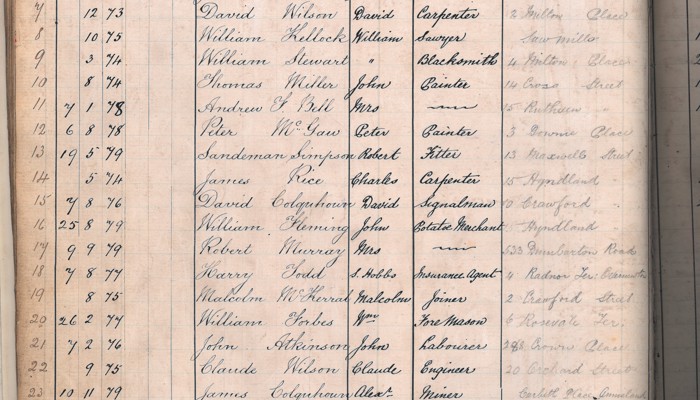 7 12 73 David Wilson David Carpenter 2 Milton Place
8 10 75 William Kellock William Sawyer Saw mills
9 3 74 William Stewart " Blacksmith 4 Milton Place
10 8 74 Thomas Miller John Painter 14 Cross Street
11 7 1 78 Andrew F Bell Mrs 15 Ruthven "
12 6 8 78 Peter McGaw Peter Painter 3 Downie Place
13 19 5 79 Sandeman Simpson Robert Fitter 13 Maxwell Street
14 5 74 James Rice Charles Carpenter 15 Hyndland
15 7 8 76 David Colquhoun David Signalman 10 Crawford "
16 25 8 79 William Fleming John Potatoe Merchant Hyndland
17 9 9 79 Robert Murray Mrs 533 Dumbarton Road
18 7 8 77 Harry Todd S. Hobbs Insurance Agent 4 Radnor Ter:
19 8 75 Malcolm McKerral Malcolm Joiner 2 Crawford Street
20 26 2 77 William Forbes Wm Fore Mason Rosevale Ter.
21 7 2 76 John Atkinson John Labourer Crown Place
22 9 75 Claude Wilson Claude Engineer 20 Orchard Street
23 10 11 79 James Colquhoun Alexr. Miner Corbett Place